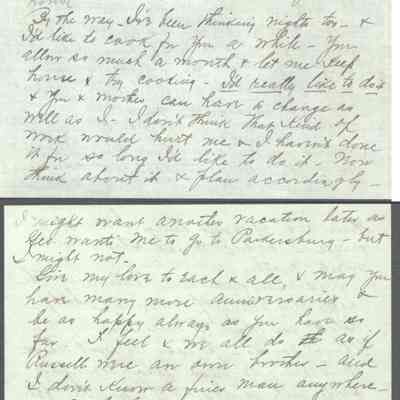 house
By the way - I've been thinking nights too - &
I'd like to cook for you a while - You
allow so much a month & let me keep
house & try cooking - I'd really like to do it
& you & mother can have a change as
well as I - I don't think that kind of
work would hurt me & I haven't done
it for so long I'd like to do it - Now
think about it & plan accordingly -
I might want another vacation later as
Geo wants me to go to Parkersburg - but
I might not.
Give my love to each & all, & may you
have many more anniversaries &
be as happy always as you have so
far. I feel & we all do as if
Russell were an own brother - and
I don't know a finer man anywhere -